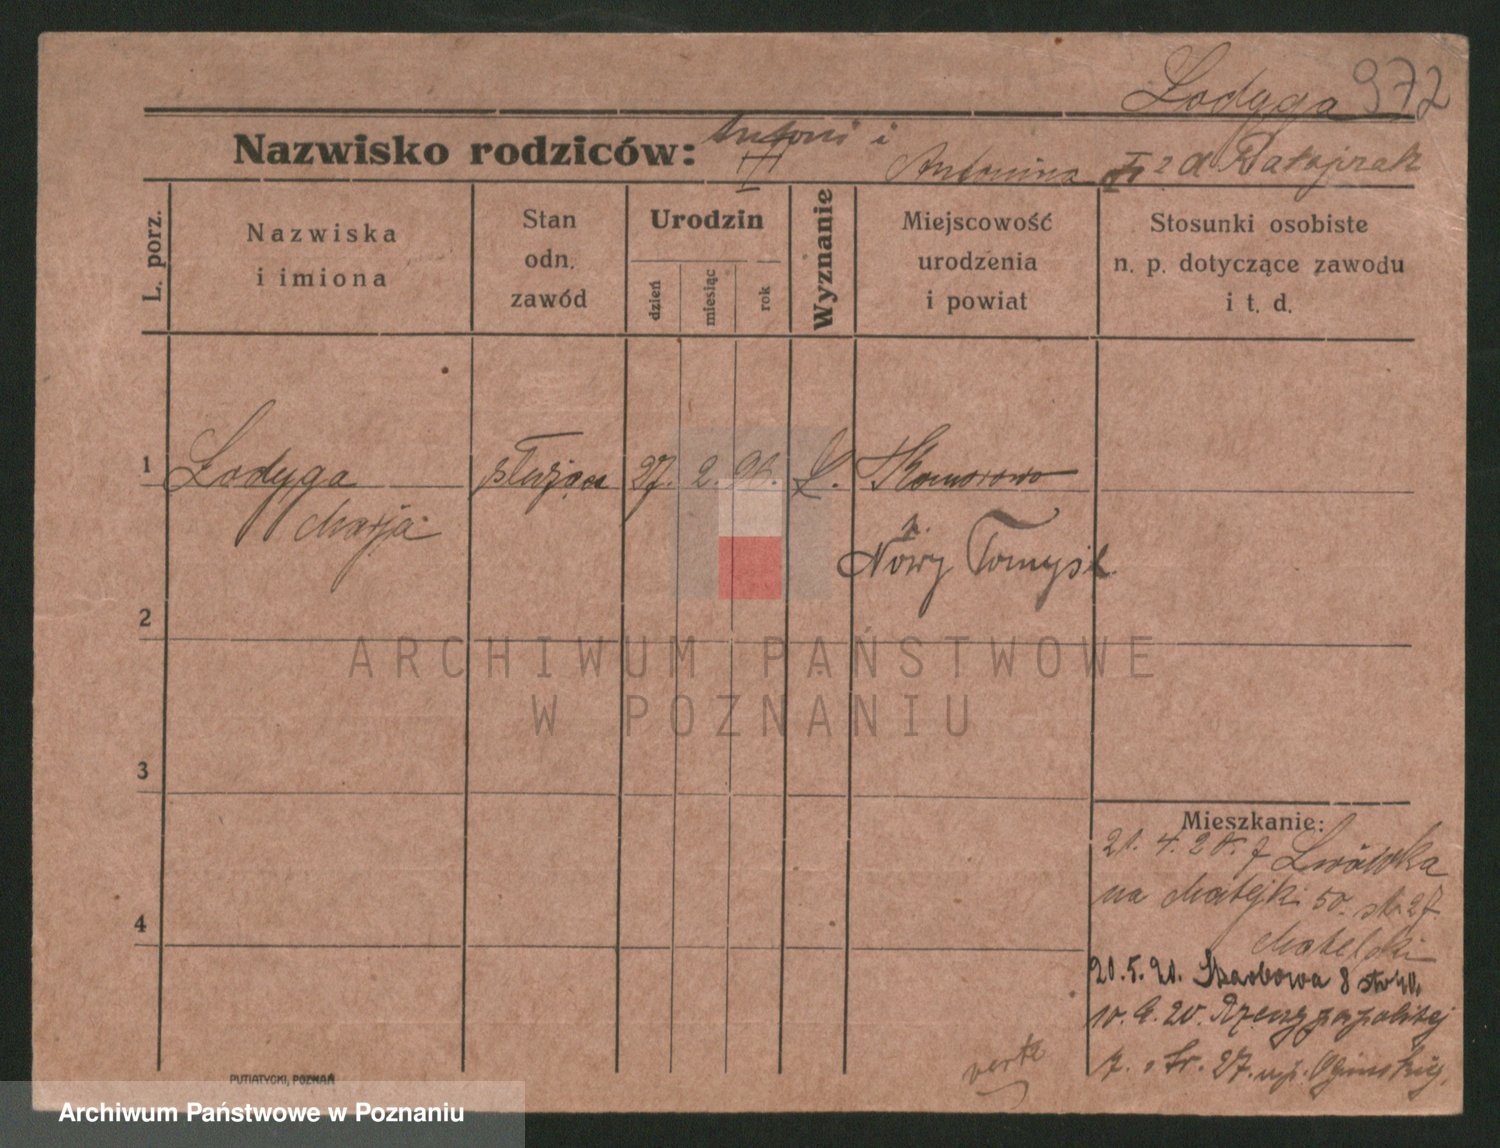 Łodyga 972
Nazwisko rodziców: Antoni i
Antonina z d Ratajczak
L. porz.
Nazwiska
i imiona
Stan
odn.
zawód
Urodzin
dzień
miesiąc
rok
Wyznanie
Miejscowość
urodzenia
i powiat
Stosunki osobiste
n. p. dotyczące zawodu
i t. d.
1 Łodyga służąca 27. 2. 96.
Marja
Komorowo
p.
Nowy Tomyśl
2
ARCHIWUM PAŃSTWOWE
W POZNANIU
3
Mieszkanie:
21. 4. 20. z Lwówka
na Matejki 50. str 27
4
20.5.20. Skarbowa 8 str 40.
10. 6. 20. Rzeczypospolitej
7. str. 27.
verte
PUTIATYCKI, POZNAŃ
Archiwum Państwowe w Poznaniu